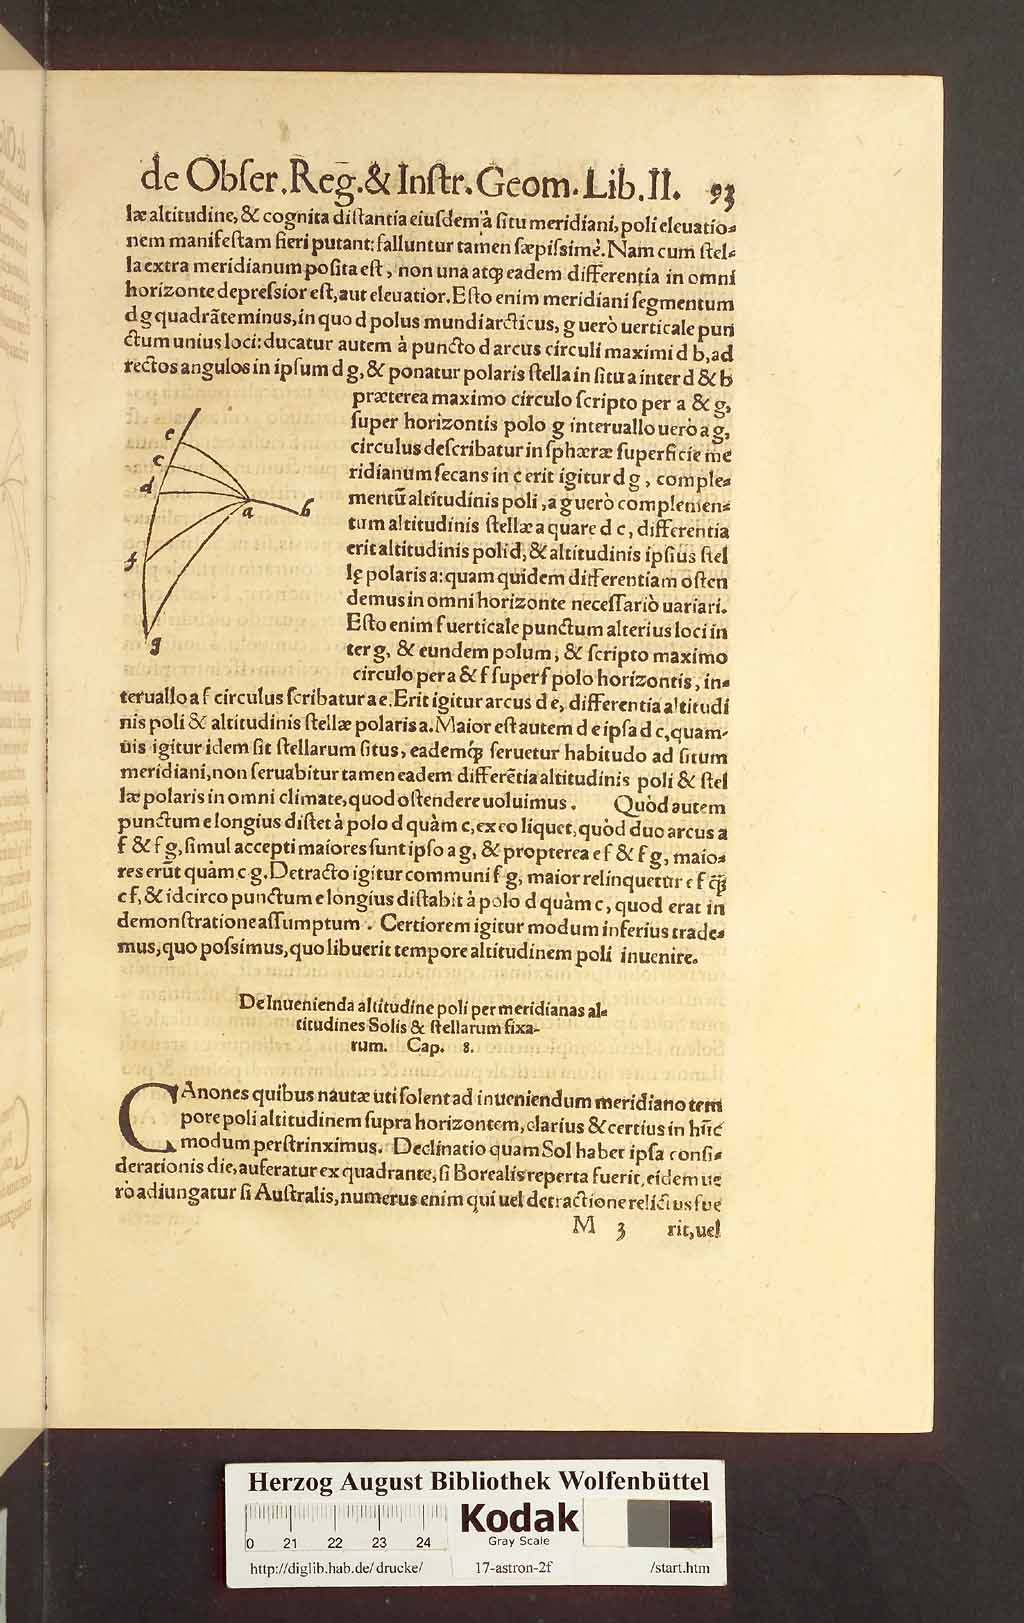 de Obſer. Reg̃. & Inſtr. Geom. Lib. II. 93
læ altitudine, & cognita diſtantia eiuſdem à ſitu meridiani, poli eleuatio-
nem manifeſtam fieri putant: falluntur tamen ſæpiſsimè. Nam cum ſtel-
la extra meridianum poſita eſt, non una atqꝫ eadem differentia in omni
horizonte depreſsior eſt, aut eleuatior. Eſto enim meridiani ſegmentum
d g quadrãte minus, in quo d polus mundi arcticus, g uerò uerticale pun
ctum unius loci: ducatur autem à puncto d arcus circuli maximi d b, ad
rectos angulos in ipſum d g, & ponatur polaris ſtella in ſitu a inter d & b
præterea maximo circulo ſcripto per a & g,
ſuper horizontis polo g interuallo uerò a g,
circulus deſcribatur in ſphæræ ſuperficie me
ridianum ſecans in c erit igitur d g, comple-
mentũ altitudinis poli, a g uerò complemen-
tum altitudinis ſtellæ a quare d c, differentia
erit altitudinis poli d, & altitudinis ipſius ſtel
lę polaris a: quam quidem differentiam oſten
demus in omni horizonte neceſſariò uariari.
Eſto enim f uerticale punctum alterius loci in
ter g, & eundem polum, & ſcripto maximo
circulo per a & f ſuper f polo horizontis, in-
teruallo a f circulus ſcribatur a e. Erit igitur arcus d e, differentia altitudi
nis poli & altitudinis ſtellæ polaris a. Maior eſt autem d e ipſa d c, quam-
uis igitur idem ſit ſtellarum ſitus, eademqꝫ ſeruetur habitudo ad ſitum
meridiani, non ſeruabitur tamen eadem differẽtia altitudinis poli & ſtel
læ polaris in omni climate, quod oſtendere uoluimus. Quòd autem
punctum e longius diſtet à polo d quàm c, ex eo liquet, quòd duo arcus a
f & f g, ſimul accepti maiores ſunt ipſo a g, & propterea e f & f g, maio-
res erũt quàm c g. Detracto igitur communi f g, maior relinquetur e f qꝫ̃
c f, & idcirco punctum e longius diſtabit à polo d quàm c, quod erat in
demonſtratione aſſumptum. Certiorem igitur modum inferius trade-
mus, quo poſsimus, quo libuerit tempore altitudinem poli inuenire.
e
c
d
a
b
f
g
De Inuenienda altitudine poli per meridianas al-
titudines Solis & ſtellarum fixa-
rum. Cap. 8.
CAnones quibus nautæ uti ſolent ad inueniendum meridiano tem
pore poli altitudinem ſupra horizontem, clarius & certius in hũc
modum perſtrinximus. Declinatio quam Sol habet ipſa conſi-
derationis die, auferatur ex quadrante, ſi Borealis reperta fuerit, eidem ue
rò adiungatur ſi Auſtralis, numerus enim qui uel detractione relictus fue
M 3 rit, uel
Herzog August Bibliothek Wolfenbüttel
0 21 22 23 24
Kodak
Gray Scale
http://diglib.hab.de/drucke/ 17-astron-2f /start.htm